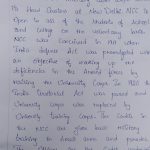 its Head Quarters at New Delhi. NCC is
Open to all the students of School
and College on the voluntary basis
NCC was conceived in NA when
India defence Act was promulgated with
an objective of making up the
deficiencies in the Army forces by
making the University Corps. In 1920 the
India Territorial Act was passed and
University Corps was replaced by
University training Corps. The Cadets in
the NCC are given basic military
training in Small arms and parades